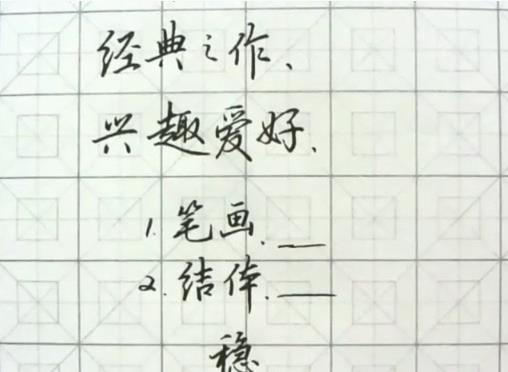 经典之作、
兴趣爱好、
1. 笔画、__
2. 结体、__
稳